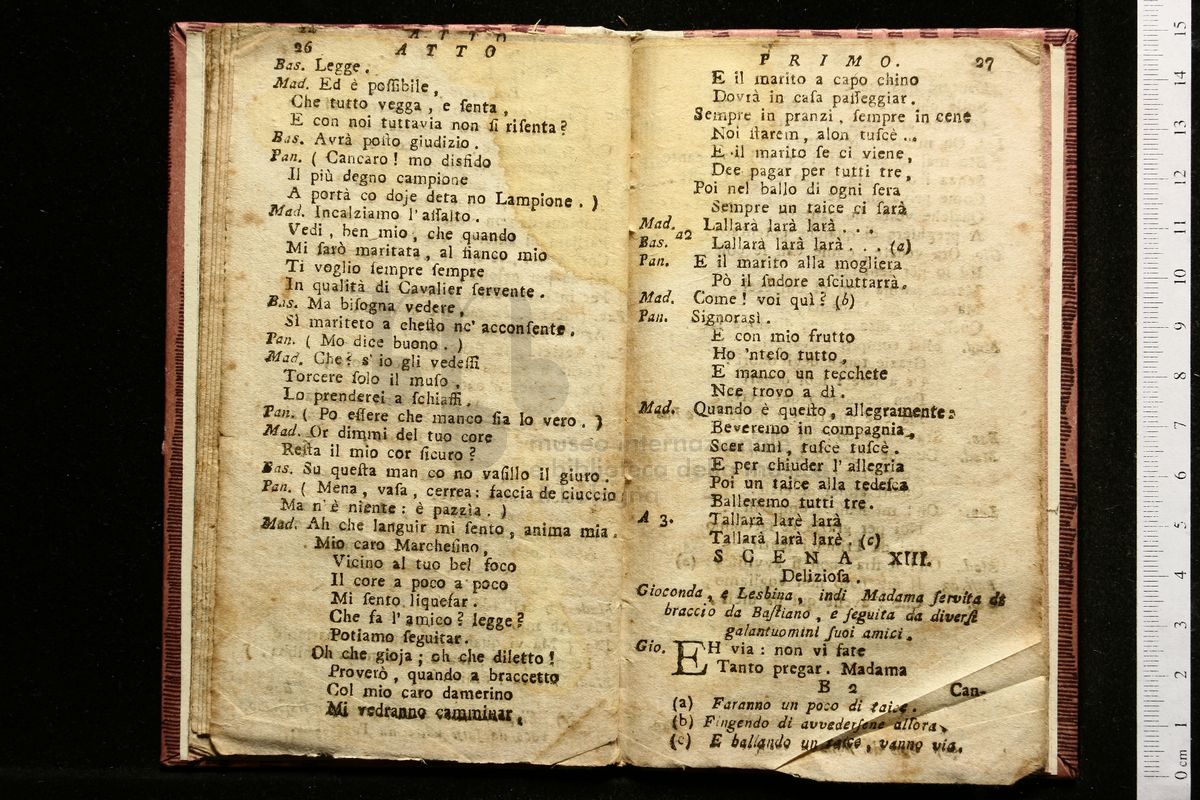 26 A T T O
Bas. Legge.
Mad. Ed è poſſibile,
Che tutto vegga, e ſenta,
E con noi tuttavia non ſi riſenta?
Bas. Avrà poſto giudizio.
Pan. ( Cancaro! mo disfido
Il più degno campione
A portà co doje deta no Lampione. )
Mad. Incalziamo l'aſſalto.
Vedi, ben mio, che quando
Mi ſarò maritata, al fianco mio
Ti voglio ſempre ſempre
In qualità di Cavalier ſervente.
Bas. Ma biſogna vedere,
Sì mariteto a cheſto nc' acconſente.
Pan. ( Mo dice buono. )
Mad. Che? s'io gli vedeſſi
Torcere ſolo il muſo,
Lo prenderei a ſchiaffi.
Pan. ( Po eſſere che manco ſia lo vero. )
Mad. Or dimmi del tuo core
Reſta il mio cor ſicuro?
Bas. Su queſta man co no vaſillo il giuro.
Pan. ( Mena, vaſa, cerrea: faccia de ciuccio
Ma n'è niente: è pazzìa. )
Mad. Ah che languir mi ſento, anima mia.
Mio caro Marcheſino,
Vicino al tuo bel foco
Il core a poco a poco
Mi ſento liquefar.
Che fa l'amico? legge?
Potiamo ſeguitar.
Oh che gioja; oh che diletto!
Proverò, quando a braccetto
Col mio caro damerino
Mi vedranno camminar,
P R I M O. 27
E il marito a capo chino
Dovrà in caſa paſſeggiar.
Sempre in pranzi, ſempre in cene
Noi ſtarem, alon tuſcè...
E il marito ſe ci viene,
Dee pagar per tutti tre,
Poi nel ballo di ogni ſera
Sempre un taice ci ſarà
Mad. Lallarà larà larà...
a2
Bas. Lallarà larà larà... (a)
Pan. E il marito alla mogliera
Pò il ſudore aſciuttarrà.
Mad. Come! voi quì? (b)
Pan. Signorasì.
E con mio frutto
Ho 'nteſo tutto,
E manco un tecchete
Nce trovo a dì.
Mad. Quando è queſto, allegramente:
Beveremo in compagnia,
Scer amì, tuſce tuſcè.
E per chiuder l'allegria
Poi un taice alla tedeſca
Balleremo tutti tre.
A 3. Tallarà larè larà
Tallarà larà larè. (c)
S C E N A XIII.
Delizioſa.
Gioconda, e Lesbina, indi Madama ſervita di
braccio da Baſtiano, e ſeguita da diverſi
galantuomini ſuoi amici.
Gio. EH via: non vi fate
Tanto pregar. Madama
B 2 Can-
(a) Faranno un poco di taice.
(b) Fingendo di avvederſene allora.
(c) E ballando un taice, vanno via.
museo internazionale
biblioteca della musica
0 cm 1 2 3 4 5 6 7 8 9 10 11 12 13 14 15